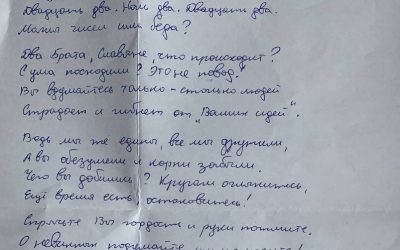 Двадцать два. Нам два. Двадцать два.
Магия чисел или беда?
Два брата, Славяне, что происходит?
С ума посходили? Это не повод!
Вы вдумайтесь только - столько людей
Страдает и гибнет от "Ваших идей".
Ведь мы же едины, все мы дружили,
А вы обезумели и корни забыли.
Чего вы добились? Кругом оглянитесь,
Ещё время есть, остановитесь!
Спрячьте Вы гордость и руки пожмите.
О невинных подумайте